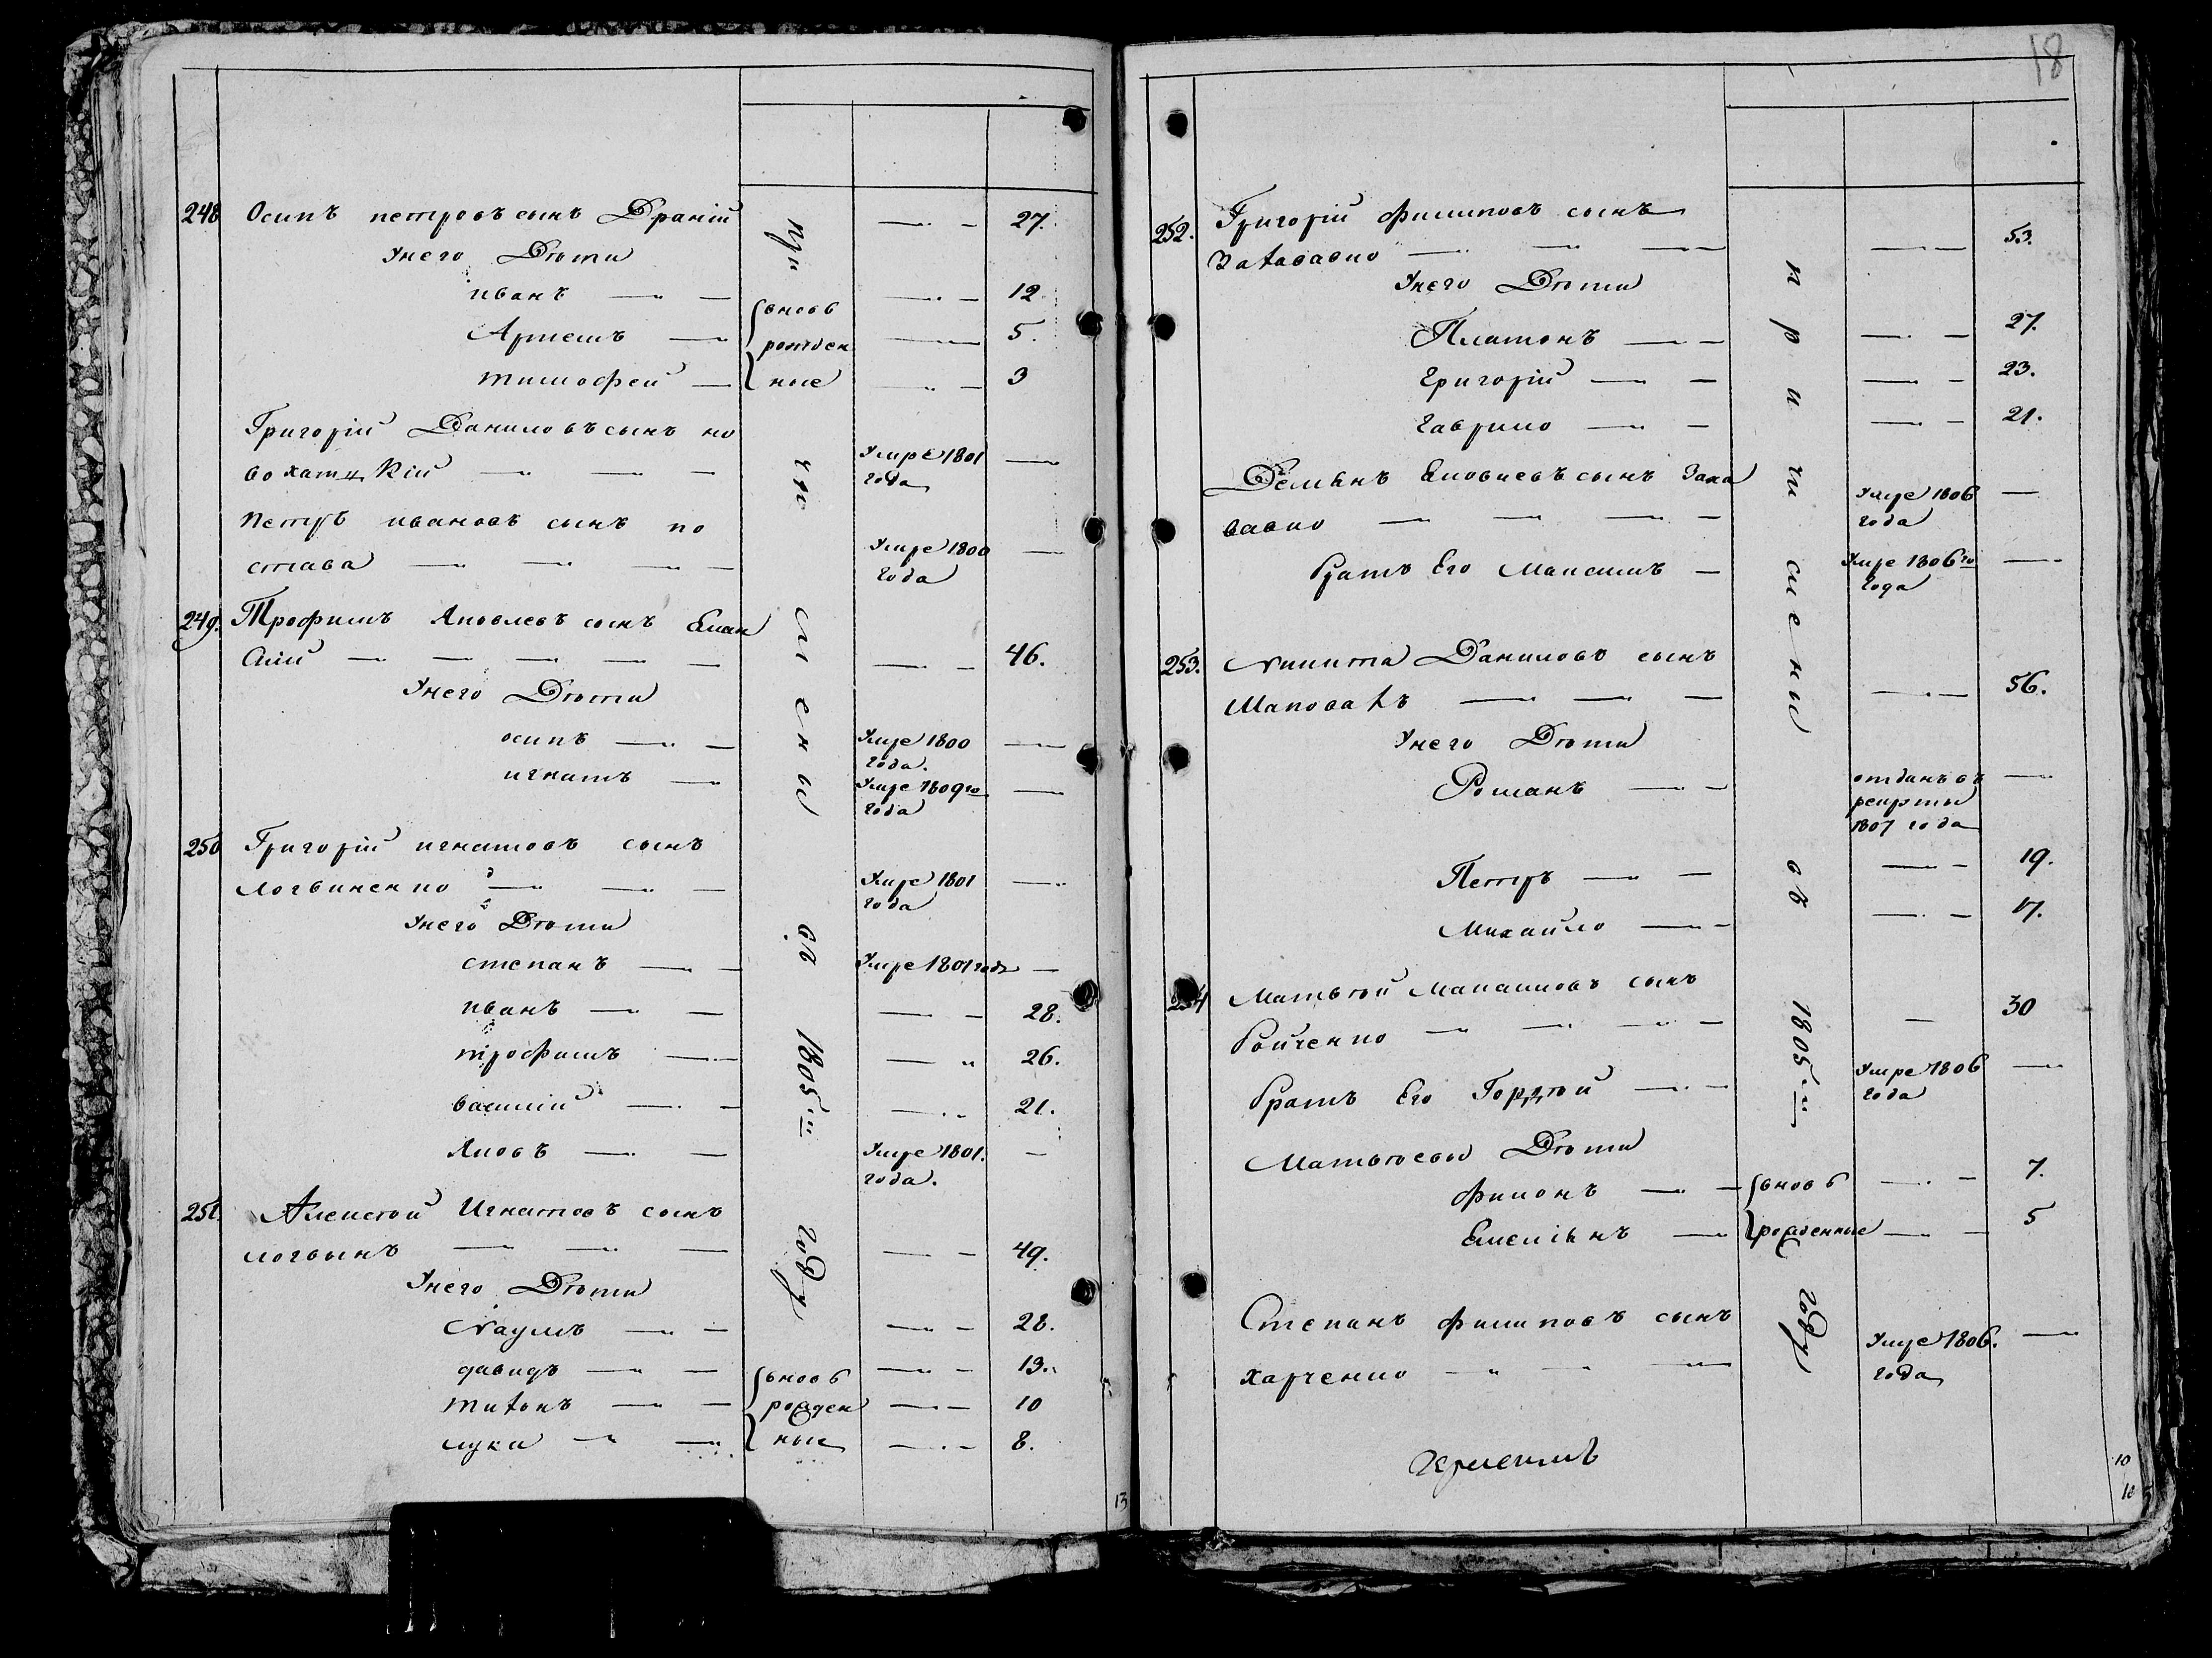 248 Осипъ петровъ сынъ Драній — 27.
Унего Дѣти
иванъ — 12
Артемъ — 5.
тимофей — 3
вновь
рожден
ные
Григорій Даниловъ сынъ но
вохатцкій —
Умре 1801
года
Петръ ивановъ сынъ по
става —
Умре 1800
года
249. Трофимъ Яковлевъ сынъ
— 46.
Унего Дѣти
осипъ — Умре 1800
года.
игнатъ — Умре 1809го
года
250 Григорій игнатовъ сынъ
Логвиненко — Умре 1801
года
Унего Дѣти
степанъ — Умре 1801 года —
иванъ — 28.
трофимъ — 26.
василій — 21.
Яковъ — Умре 1801.
года.
251. Алексѣй Игнатовъ сынъ
логвынъ — 49.
Унего Дѣти
Наумъ — 28.
давидъ — 13.
титонъ — 10
лука — 8.
вновь
рожден
ные
причисленъ въ 1805м году
13
18
252. Григорій филиповъ сынъ
— 53.
Унего Дѣти
Платонъ — 27.
григорій — 23.
гаврило — 21.
Демьянъ сынъ
— Умре 1806
года
братъ Его Максимъ — Умре 1806го
года
253. Никита Даниловъ сынъ
Шаповалъ — 56.
Унего Дѣти
Романъ — отданъ въ
рекруты
1807 года
Петръ — 19.
Михайло — 17.
254 Матвѣй сынъ
Бойченко — 30
братъ Его Гордѣй — Умре 1806
года
Матвѣевы Дѣти
филонъ — 7.
Емельянъ — 5
вновь
рожденные
Степанъ филиповъ сынъ
харченко — Умре 1806.
года
причислены въ 1805м году
10